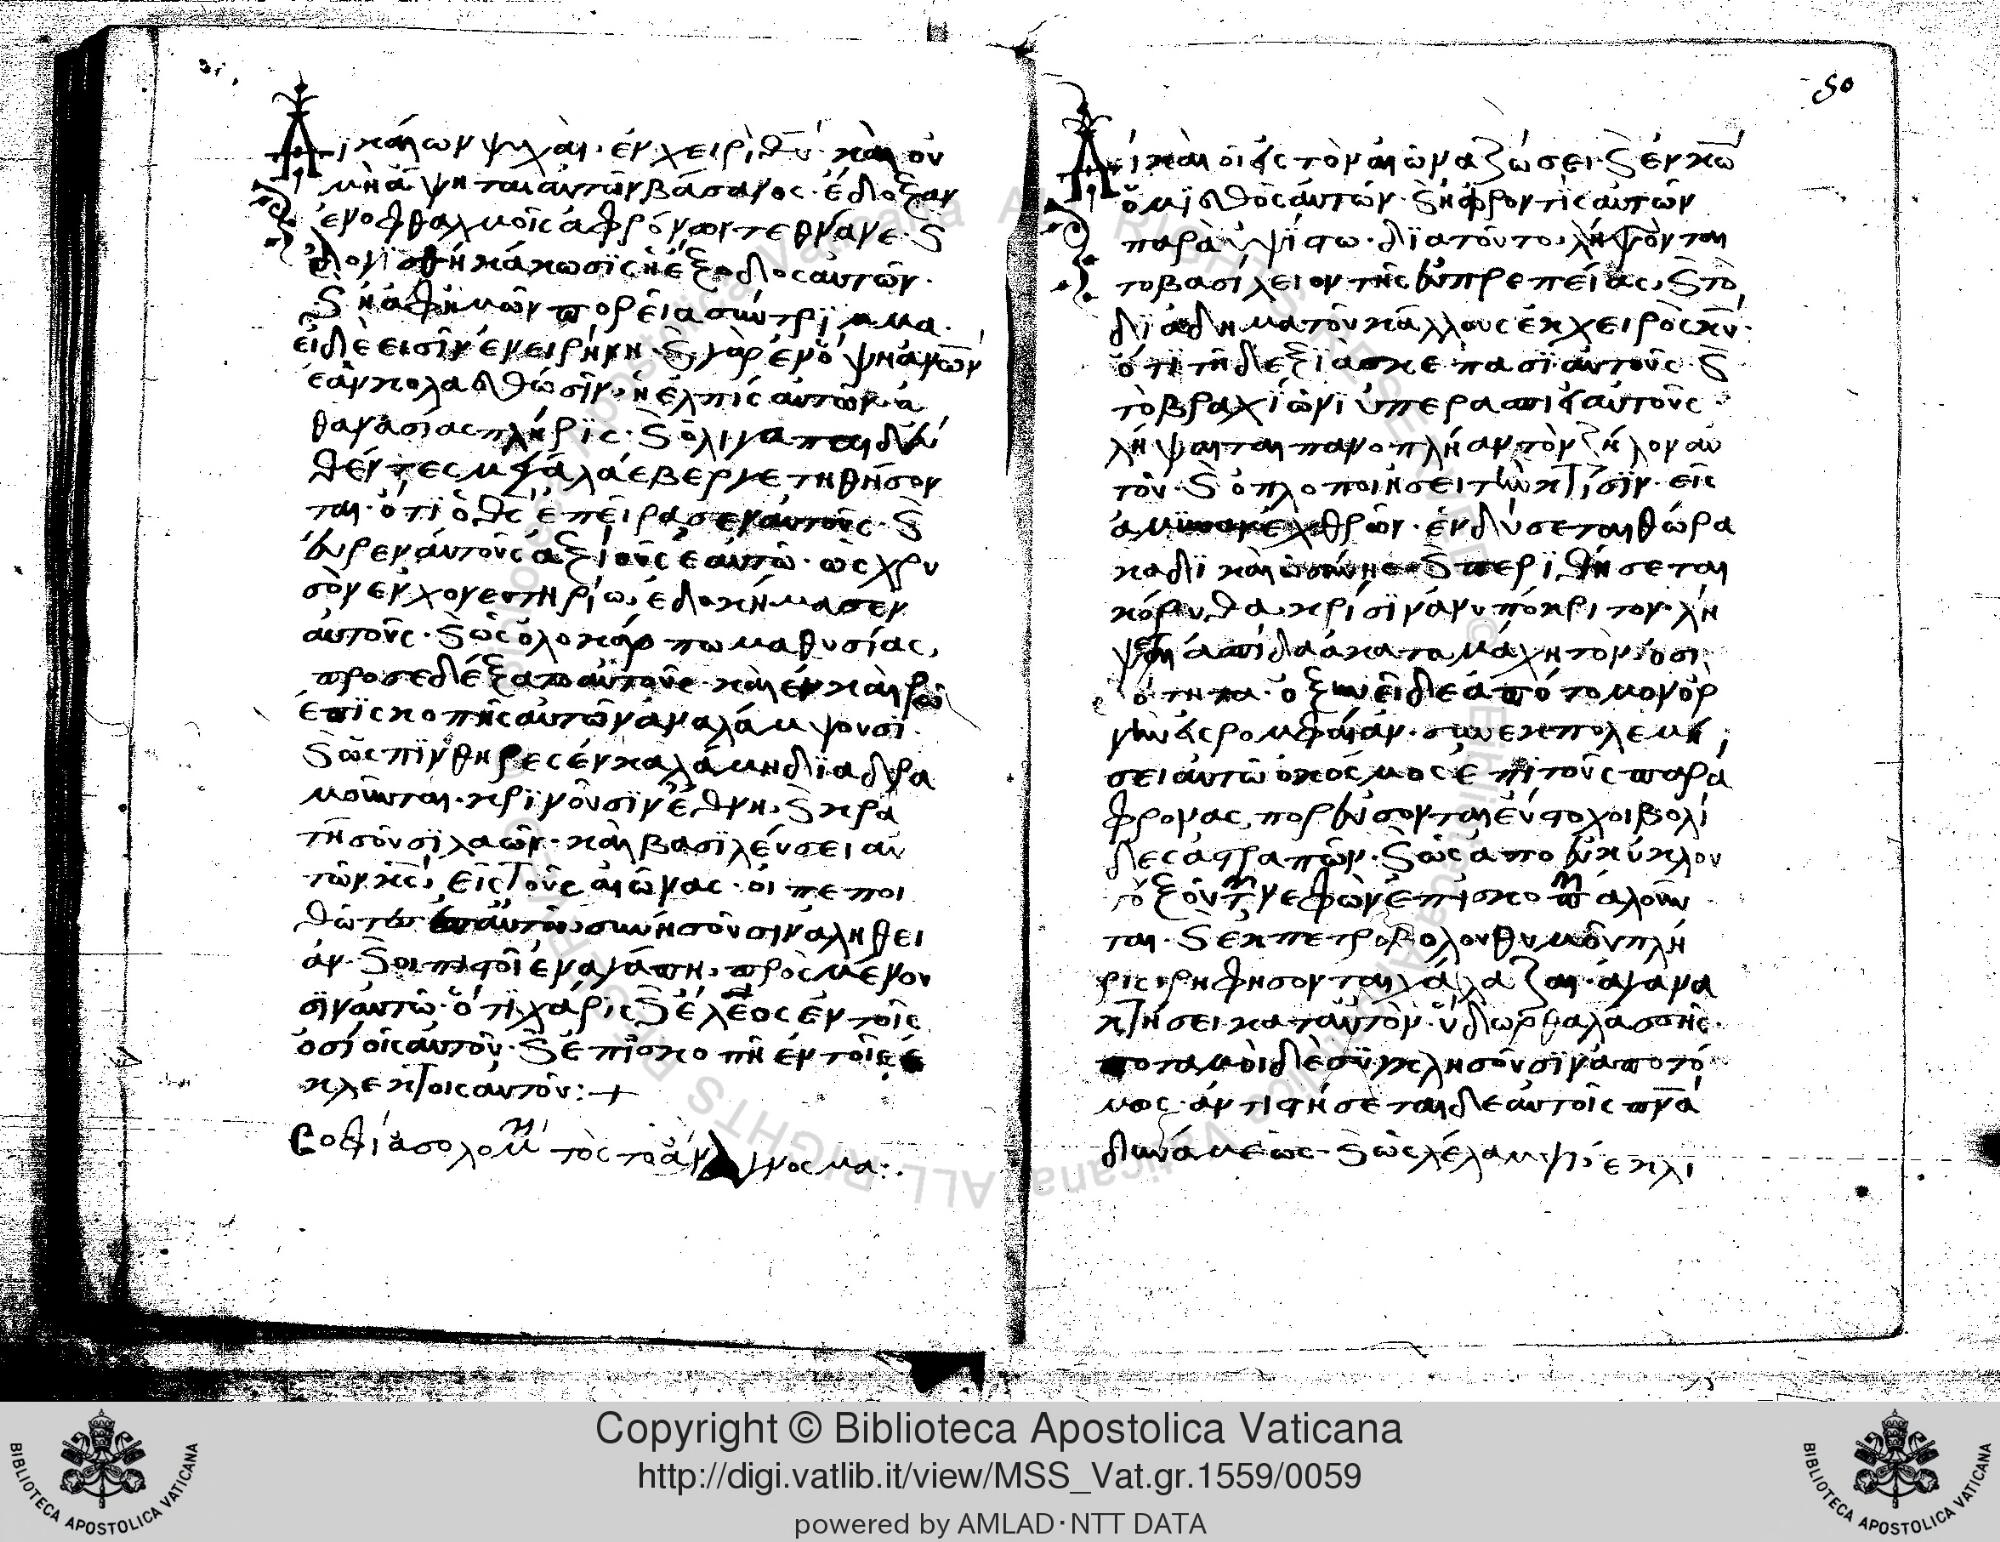 Δικαίων ψυχαὶ· ἐν χειρὶ θυ· καὶ οὐ
μὴ ἅψηται αυτῶν βάσανος· ἔδοξαν
ἐν οφθαλμοῖς ἀφρόνων τεθνάνε· κ
ἐλογϊσθή κάκωσϊς ἡ ἔξοδος αυτῶν·
κ ἡ ἀφ ημῶν πορεία σύντρϊμμα·
οἱ δὲ εισὶν ἐν ειρήνη· κ γὰρ ἐν ὄψη ἀνων
ἐὰν κολασθῶσϊν· ἡ ἐλπὶς αυτῶν ἀ
θανασίας πλήρϊς· κ ὀλίγα παιδευ
θέντες μεγάλα ἐβεργετηθήσον
ται· ὅτϊ ὁ θς ἐπείρασεν αυτοὺς· κ
εὗρεν αυτοὺς ἀξίους ἑαυτῶ· ὡς χρυ
σὸν ἐν χονευτηρίω, ἐδοκήμασεν
αυτοὺς· κ ὡς ὁλοκάρπωμα θυσίας,
προσεδέξατο αυτοὺς· καὶ ἐν καιρῶ
ἐπϊσκοπῆς αυτῶν ἀναλάμψουσϊ·
κ ὡς σπϊνθηρες ἐν καλάμη δϊαδρα
μοῦνται· κρϊνοῦσϊν ἔθνη, κ κρα
τήσουσϊ λαῶν· καὶ βασϊλεύσει αυ
τῶν κς, εἰς τοὺς αἰῶνας· οἱ πεποι
θώτες ἐπ αυτῶ, συνήσουσιν αληθει
αν· κ οι πιστοὶ ἐν αγάπη, προσμένου
σϊν αυτῶ· ὅτϊ χάρις κ ἔλεος ἐν τοῖς
ὁσίοις αυτοῦ· κ ἐπϊσκοπὴ ἐν τοῖς ἐ
κλεκτοις αυτοῦ:+
Σοφία σολομῶτος το ἀναγνοσμα:.
50
Δίκαιοι εἰς τὸν αἰῶνα ζώσει· κ ἐν κω
ὁ μϊσθὸς αυτῶν· κ ἡ φροντϊς αυτῶν
παρὰ ὑψίστω· δϊατοῦτο, λήψονται
το βασίλειον τῆς ευπρεπείας, κ τὸ
δϊάδημα τοῦ κάλλους ἐκ χειρὸς κυ·
ὅτϊ τῆ δεξϊᾶ σκεπασϊ αυτοὺς· κ
τῶ βραχίωνϊ ὑπερασπιεῖ αυτοὺς
λήψαιται πανοπλήαν τὸν ζήλον αυ
τοῦ· κ ὁπλοποιήσει τὴν κτίσϊν· εἰς
αμϊναν ἐχθρῶν· ἐνδύσεται θώρα
κα δϊκαιωσύνης· κ περϊθήσεται
κόρυθα, κρίσϊν ἀνυπόκριτον· λή
ψεται ἀσπίδα ἀκαταμάχητον, ὁσι
ότητα· ὀξυνεῖ δὲ ἀπότομον ὀρ
γὴν εἰς ρομφαίαν· συνεκπολεμή
σει αυτῶ ὁ κόσμος ἐπὶ τοὺς παρά
φρονας, πορεύσονται εὔστοχοι βολί
δες ἀστραπῶν· κ ὡς απο ευκύκλου
τόξου τῶν νεφῶν ἐπϊ σκοπὸν ἁλοῦν
ται· κ ἐκ πετροβόλου θυμοῦ πλή
ρις ριφήσονται χάλαζαι· ἀγανα
κτήσει κατ αυτὸν· ὕδωρ θαλάσσης·
ποταμοὶ δὲ συγκλησοῦσϊν ἀποτό
μος· ἀντιστήσεται δε αυτοῖς πνα
δυνάμεως· κ ὡς λέλαμψ, ἐκλι
Copyright © Biblioteca Apostolica Vaticana
http://digi.vatlib.it/view/MSS_Vat.gr.1559/0059
powered by AMLAD·NTT DATA
BIBLIOTECA APOSTOLICA VATICANA
BIBLIOTECA APOSTOLICA VATICANA